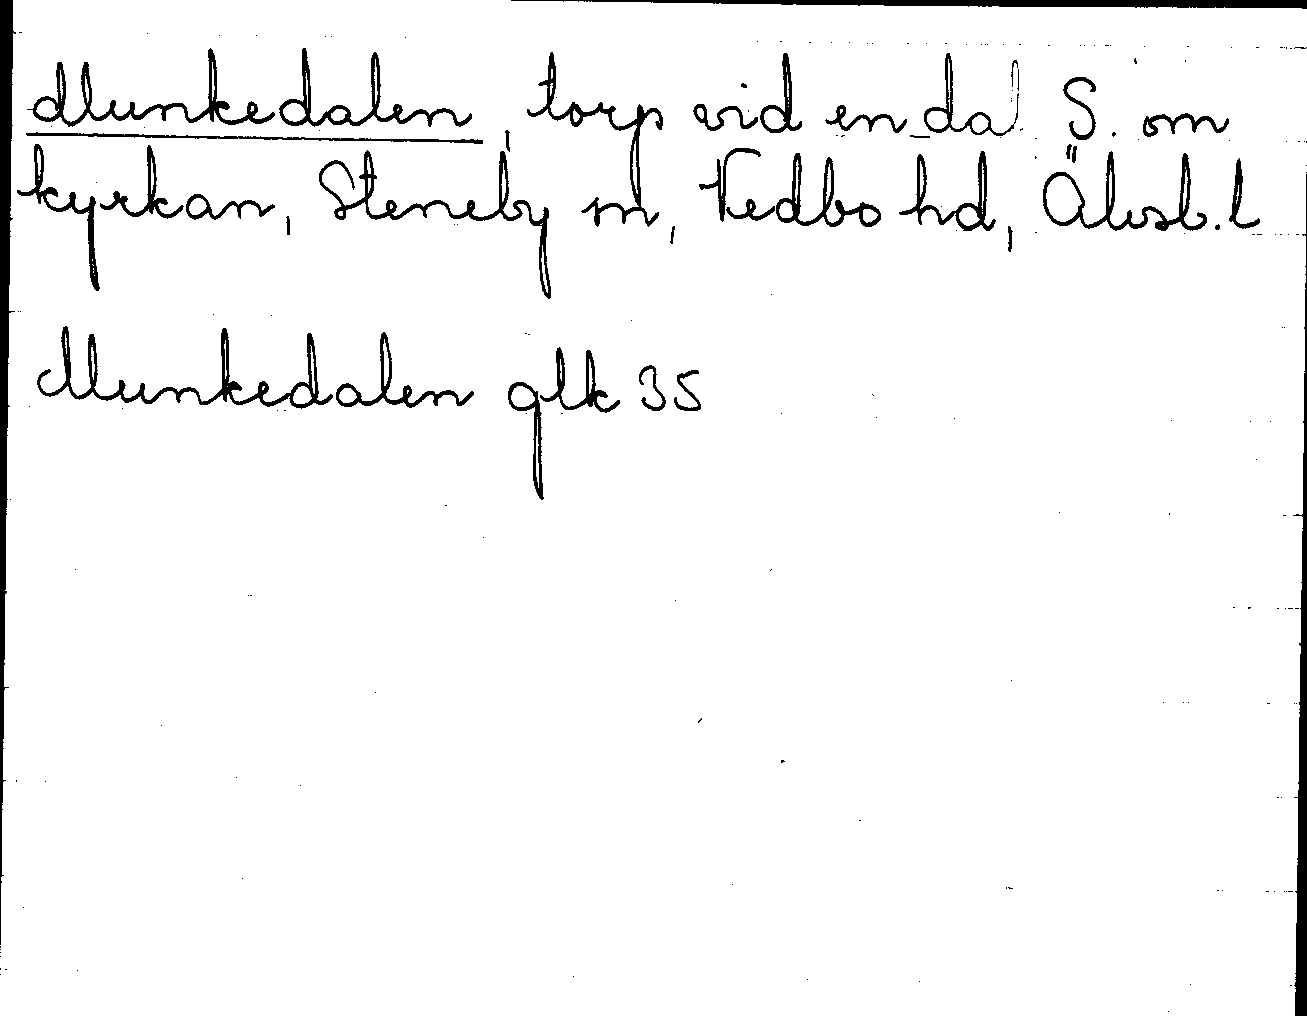 Munkedalen, torp vid en dal S. om
kyrkan, Steneby sn, Vedbo hd, Älvsb. l
Munkedalen glk 35